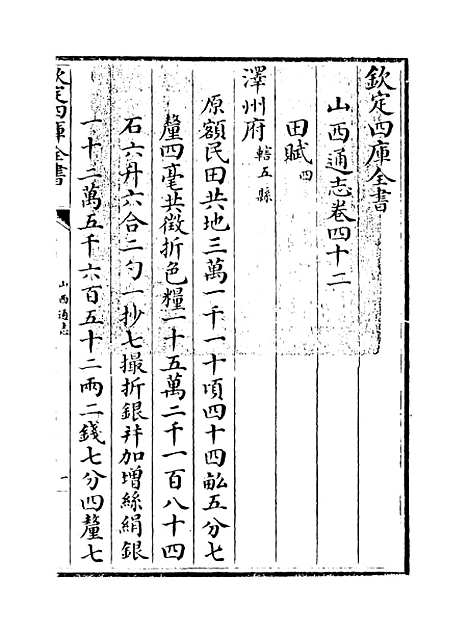 欽定四庫全書
山西通志卷四十二
田賦四
澤州府轄五縣
原額民田共地三萬一千一十頃四十四畝五分七
釐四毫共徵折色糧一十五萬二千一百八十四
石六升六合二勺一抄七撮折銀并加增絲絹銀
一十二萬五千六百五十二兩二錢七分四釐七
欽定四庫全書
山西通志
一